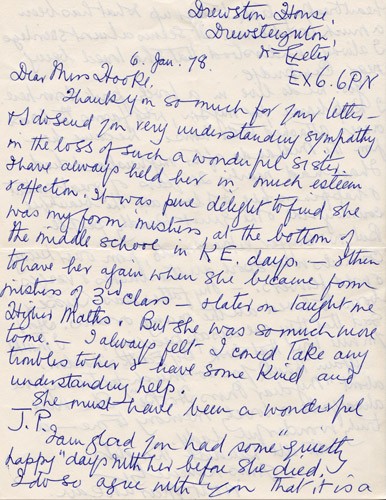 Drewston House,
Drewsteignton,
Nr Exeter
6. Jan. 78. EX6.6PN
Dear Miss Hooke.
Thank you so much for your letter –
& I do send you very understanding sympathy
on the loss of such a wonderful sister.
I have always held her in much esteem
& affection. It was pure delight to find she
was my form mistress at the bottom of
the middle school in K.E. days – & then
to have her again when she became form
mistress of 3rd class – & later on taught me
Higher Maths. But she was so much more
to me. – I always felt I could take any
troubles to her & have some kind and
understanding help.
She must have been a wonderful
J.P.
I am glad you had some "quietly
happy" days with her before she died.
I do so agree with you that it is a